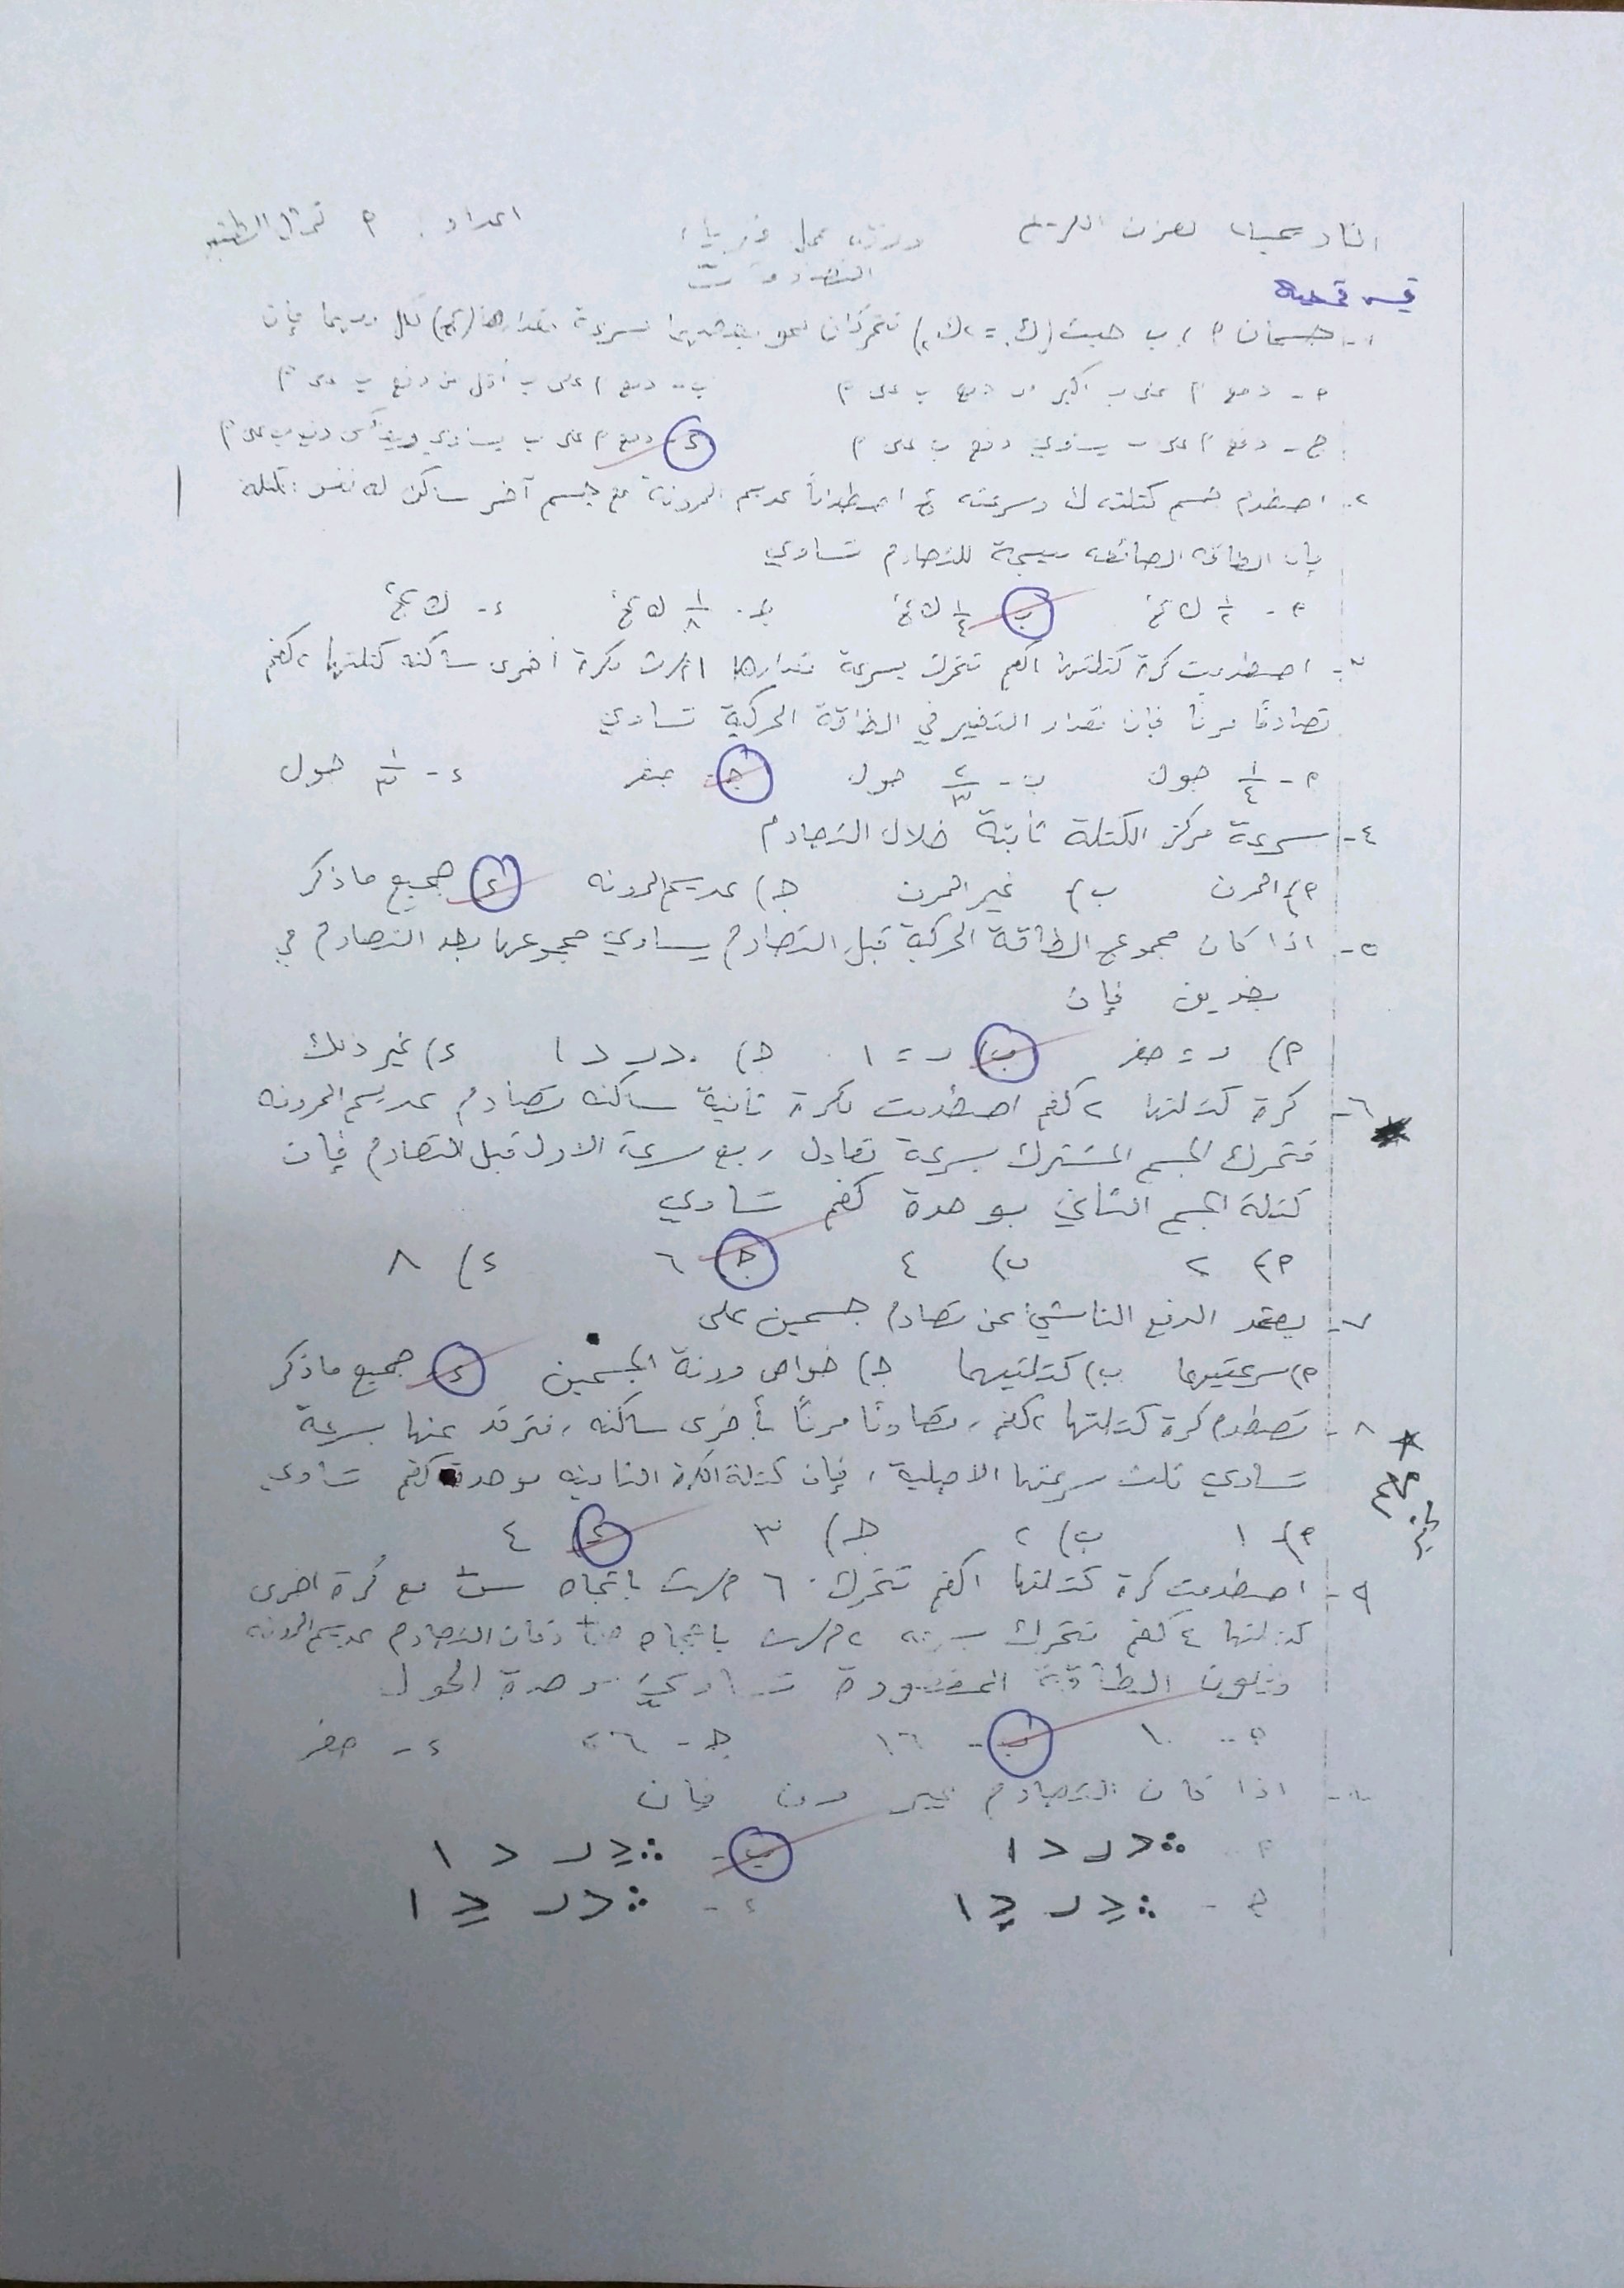 ورقة عمل فيزياء
اعداد. م
التصادمات
١- جسمان م ، ب حيث (ك = ك) تتحركان نحو بعضهما بسرعة مقدارها (ع) لكل منهما فإن
م - دفع م على ب اكبر من دفع ب على م
ب - دفع م على ب أقل من دفع ب على م
ج - دفع م على ب يساوي دفع ب على م
د - دفع م على ب يساوي ويعاكس دفع ب على م
٢- اصطدم جسم كتلته ك وسرعته ع اصطداماً عديم المرونة مع جسم آخر ساكن له نفس الكتلة
فإن الطاقة الضائعة نتيجة للتصادم تساوي
م - ١/٢ ك ع٢ ب - ١/٤ ك ع٢ جـ - ١/٨ ك ع٢ د - ك ع٢
٣- اصطدمت كرة كتلتها ١كغم تتحرك بسرعة مقدارها ١م/ث بكرة أخرى ساكنة كتلتها ٢كغم
تصادمًا مرنًا فإن مقدار التغير في الطاقة الحركية تساوي
م - ١/٤ جول ب - ٢/٣ جول جـ - صفر د - ١/٣ جول
٤- سرعة مركز الكتلة ثابتة خلال التصادم
م) المرن ب) غير المرن جـ) عديم المرونه د) جميع ما ذكر
٥- اذا كان مجموع الطاقة الحركية قبل التصادم يساوي مجموعها بعد التصادم في
بعدين فإن
م) ر = صفر ب) ر = ١ جـ) ٠ < ر < ١ د) غير ذلك
٦- كرة كتلتها ٢ كغم اصطدمت بكرة ثانية ساكنه تصادم عديم المرونه
فتحرك الجسم المشترك بسرعة تعادل ربع سرعة الاول قبل التصادم فإن
كتلة الجسم الثاني بوحدة كغم تساوي
م) ٢ ب) ٤ جـ) ٦ د) ٨
٧- يعتمد الدفع الناشئ عن تصادم جسمين على
م) سرعتيهما ب) كتلتيهما جـ) خواص مرونة الجسمين د) جميع ما ذكر
٨- تصطدم كرة كتلتها ٢كغم، تصادمًا مرنًا بأخرى ساكنه، فترتد عنها بسرعة
تساوي ثلث سرعتها الاصلية، فإن كتلة الكرة الثانية بوحدة كغم تساوي
م) ١ ب) ٢ جـ) ٣ د) ٤
٩- اصطدمت كرة كتلتها ١كغم تتحرك ٦ م/ث باتجاه س+ مع كرة اخرى
كتلتها ٤ كغم تتحرك بسرعة ٢م/ث باتجاه ص+ وكان التصادم عديم المرونه
فتكون الطاقة المفقودة تساوي بوحدة الجول
م - ١٠ ب - ١٦ جـ - ٢٦ د - صفر
١٠- اذا كان التصادم غير مرن فإن
م - ٠ < ر < ١ ب - ٠ ≤ ر < ١
ج - ٠ ≤ ر ≤ ١ د - ٠ < ر ≤ ١